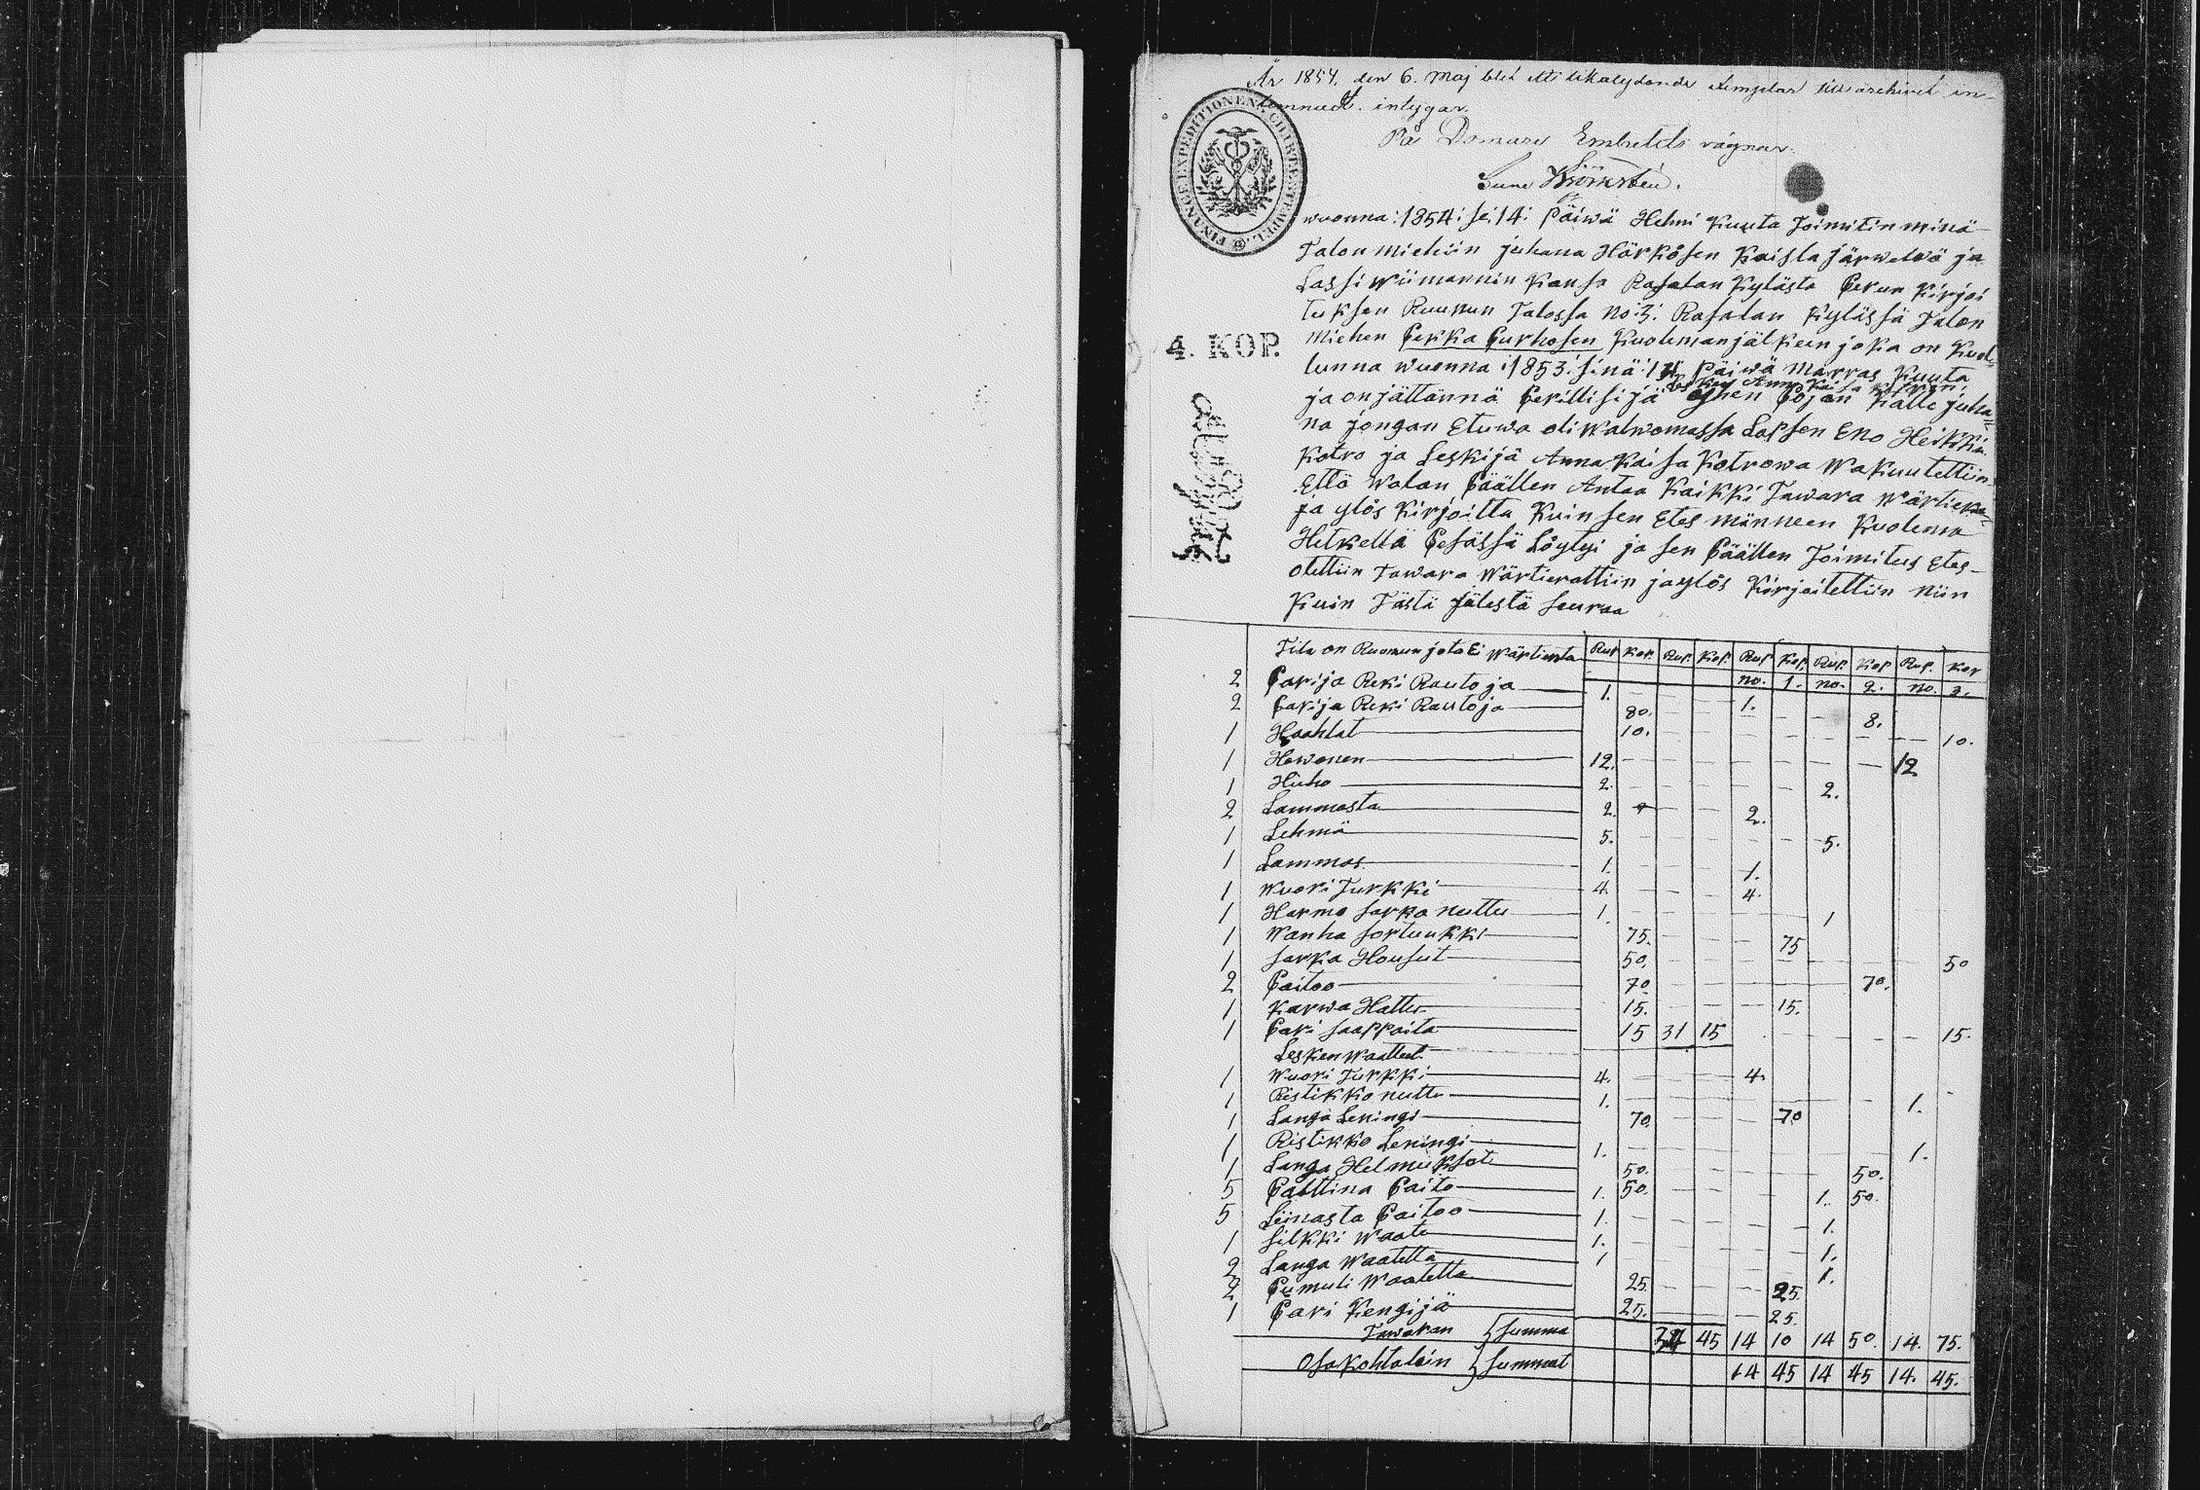 År 1854. den 6. Maj blef ett likalydande exemplar till archivet in-
lemnadt. intygar.
På Domare Embetets vägnar.
FINANCE EXPEDITIONEN. CHARTÆ STEMPEL.
wuonna: 1854: se: 14: Päiwä Helmi Kuuta Toimitin minä
Talon miehiin juhana Härkösen Kaisla järweldä ja
Lassi Wiimannin Kansa Rasalan Kylästä Perun Kirjoi
tuksen Ruunun Talossa No: 3: Rasalan Kylässä Talon
4. KOP.
miehen Pekka Purhosen Kuoleman jälkeen joka on Kuol-
lunna wuonna 1853: sinä: Päiwä Marras Kuuta
Lesken Anna Kaisa
ja on jättännä Perillisijä yhen Pojan Kalle juha-
na jongan Etuwa oli Walwomassa Lapsen Eno Heikki
Kotro ja Leskijä Anna Kaisa Kotrowa Wakuutettiin
Että Walan Päällen Antaa Kaikki Tawara Wärtierata
ja ylös Kirjoitta Kuin sen Etes männeen Kuolema
Hetkellä Pesässä Löytyi ja sen Päällen Toimitus Etes-
otettiin Tawara Wärtierattiin ja ylös Kirjoitettiin niin
Kuin Tästä jälestä seuraa
Tila on Ruunun jota Ei Wärtierata Rup Kop. Rup. Kop. Rup Kop. Rup. Kop Rup. Kop
no. 1. no. 2. no. 3.
2 Parija Reki Rautoja 1. 1.
2 Parija Reki Rautoja 80. 8.
1 Haahlat 10. 10.
1 Hewonen 12. 12
1 Hieho 2. 2.
2 Lammasta 2. 2.
1 Lehmä 5. 5.
1 Lammas 1. 1.
1 Wuori Turkki 4. 4.
1 Harma sarka nuttu 1. 1
1 Wanha sortuukki 75. 75
1 sarka Housut 50. 50
2 Paitoo 70 70.
1 Karwa Hattu 15. 15.
1 Pari saappaita 15 31 15 15.
Lesken Waatteet
1 Wuori Turkki 4. 4.
1 Ristikko nuttu 1. 1.
1 Langa Leningi 70. 70
1 Ristikko Leningi 1. 1.
1 Langa Helmukset 50. 50.
5 Palttina Paito 1. 50. 1. 50.
5 Liinasta Paitoo 1. 1.
1 silkki Waate 1. 1.
2 Langa Waatetta 1 1.
2 Pumuli Waatetta 25. 25.
1 Pari Kengijä 25. 25.
Tawaran } summa 45 14 10 14 50. 14. 75.
Osakohtalain } summat 14 45 14 45 14. 45.